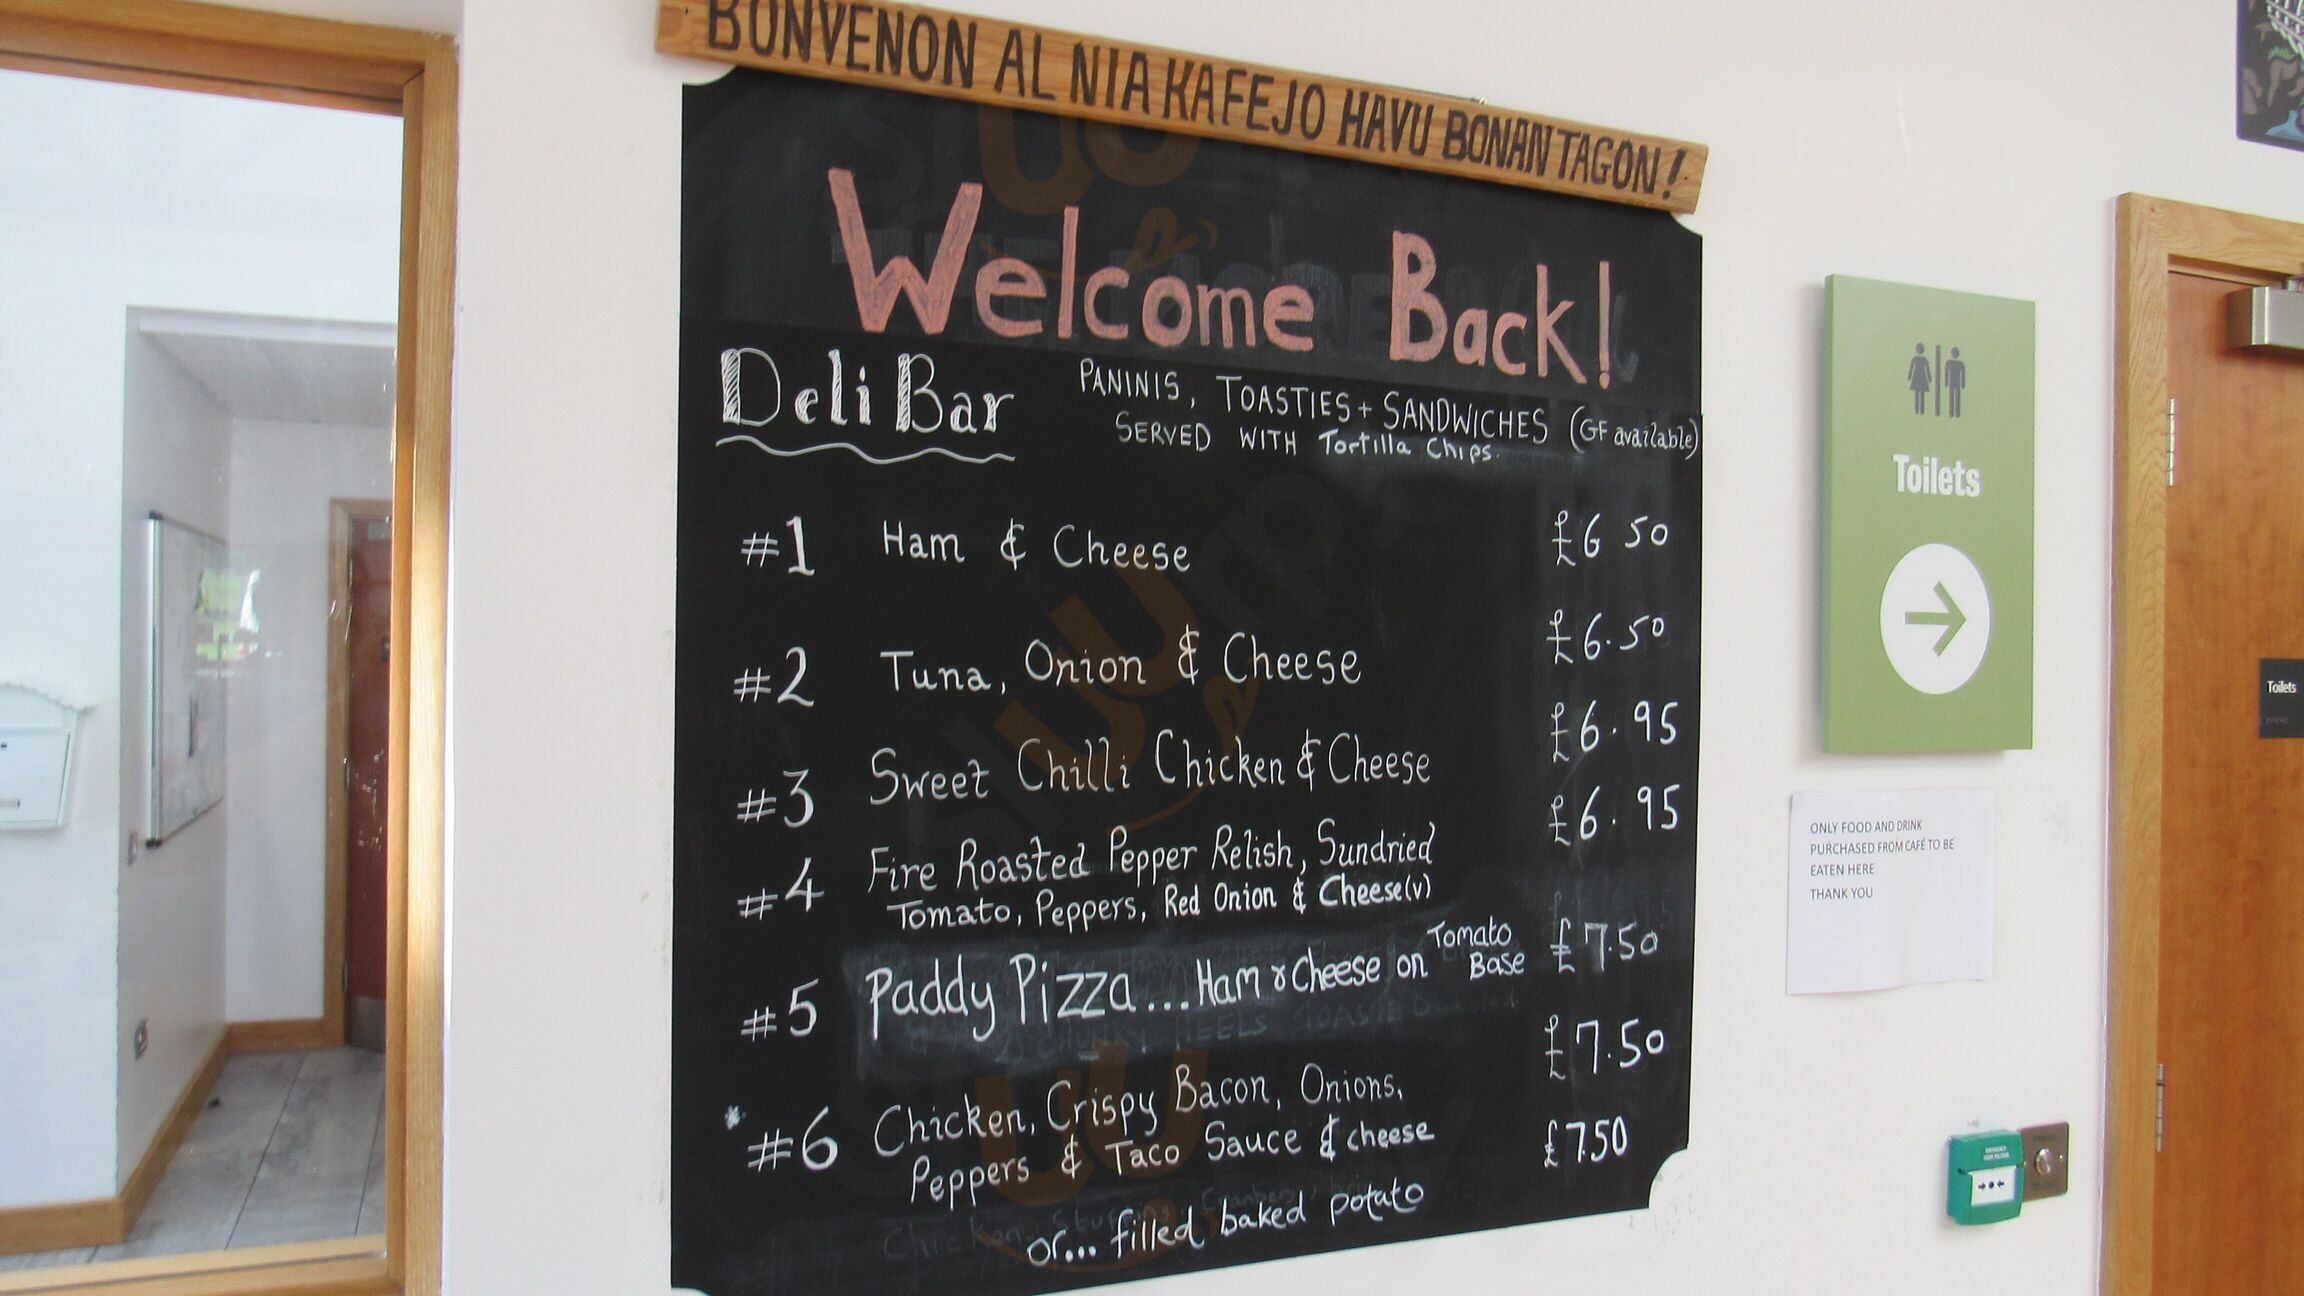 BONVENON AL NIA KAFEJO HAVU BONAN TAGON!
Welcome Back!
Deli Bar
PANINIS, TOASTIES + SANDWICHES (GF available)
SERVED WITH Tortilla Chips.
#1 Ham & Cheese £6 50
#2 Tuna, Onion & Cheese £6.50
#3 Sweet Chilli Chicken & Cheese £6.95
£6.95
#4 Fire Roasted Pepper Relish, Sundried
Tomato, Peppers, Red Onion & Cheese (v)
#5 Paddy Pizza ... Ham & Cheese on Tomato Base £7.50
£7.50
*#6 Chicken, Crispy Bacon, Onions,
Peppers & Taco Sauce & cheese £7.50
or... filled baked potato
Toilets
ONLY FOOD AND DRINK
PURCHASED FROM CAFÉ TO BE
EATEN HERE
THANK YOU
Toilets